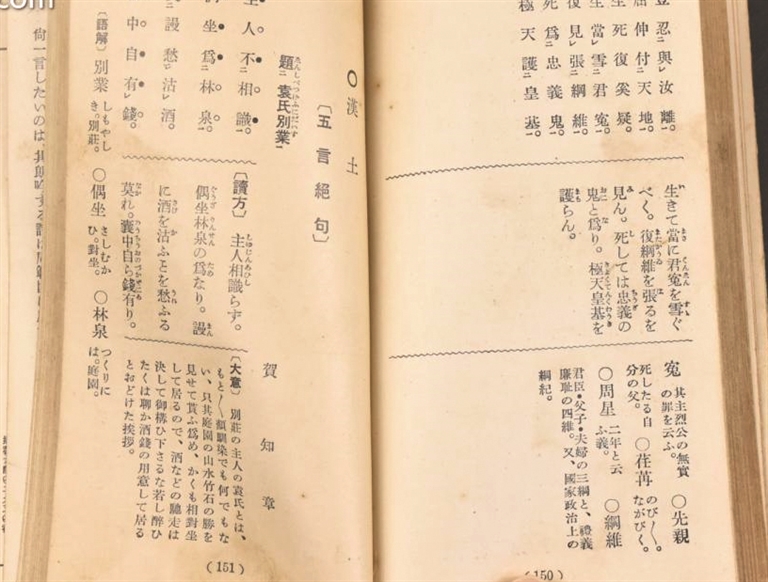 忍與汝離。
屈伸付天地。
生死復奚疑。
生當雪君冤。
復見張綱維。
死爲忠義鬼。
極天護皇基。
生きて當に君冤を雪ぐ
べく。復綱維を張るを
見ん。死しては忠義の
鬼と爲り。極天皇基を
護らん。
冤 其主烈公の無實の罪を云ふ。 〇先親
死したる自分の父。 〇荏苒 のび〱。ながびく。
〇周星 二年と云ふ義。 〇綱維
君臣・父子・夫婦の三綱と、禮義
廉耻の四維。又、國家政治上の
綱紀。
(150)
〇漢土
〔五言絕句〕
題ニ袁氏別業ニ
賀知章
主人不ニ相識ニ。
偶坐爲ニ林泉ニ。
謾愁ニ沽ﾚ酒。
中自有ﾚ錢。
〔讀方〕 主人相識らず。
偶坐林泉の爲なり。謾
に酒を沽ふとを愁ふる
莫れ。囊中自ら錢有り。
〔大意〕 別莊の主人の袁氏とは、
もと〱顏馴染でも何でもな
い、只其庭園の山水竹石の勝を
見せて貰ふ爲め、かくも相對坐
して居るので、酒などの馳走は
決して御構ひ下さるな若し醉ひ
たくは聊か酒錢の用意して居る
とおどけた挨拶。
〔語解〕 別業 しもやしき。別莊。 〇偶坐 さしむかひ。對坐。 〇林泉 つくりには。庭園。
(151)
尙一言したいのは、
.com